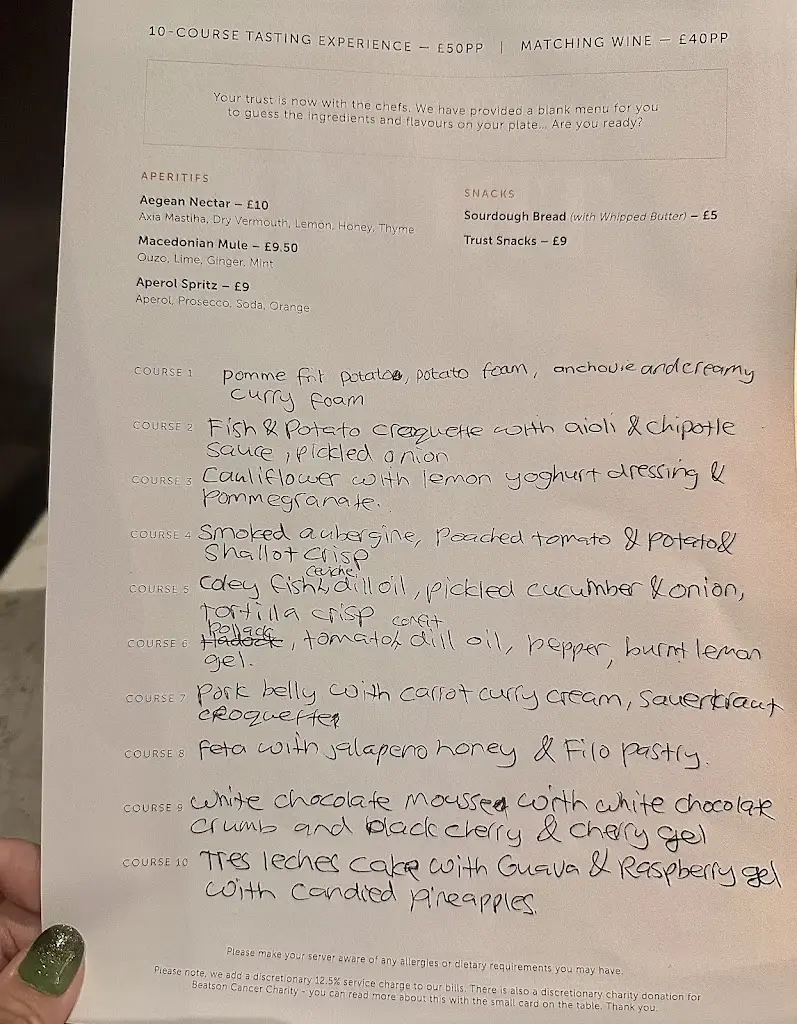 10-COURSE TASTING EXPERIENCE — £50PP | MATCHING WINE — £40PP
Your trust is now with the chefs. We have provided a blank menu for you
to guess the ingredients and flavours on your plate... Are you ready?
APERITIFS
Aegean Nectar — £10
Axia Mastiha, Dry Vermouth, Lemon, Honey, Thyme
Macedonian Mule — £9.50
Ouzo, Lime, Ginger, Mint
Aperol Spritz — £9
Aperol, Prosecco, Soda, Orange
SNACKS
Sourdough Bread (with Whipped Butter) — £5
Trust Snacks — £9
COURSE 1 pomme frit potato, potato foam, anchovie and creamy
curry foam
COURSE 2 Fish & Potato croquette with aioli & chipotle
sauce, pickled onion
COURSE 3 Cauliflower with lemon yoghurt dressing &
pommegranate.
COURSE 4 Smoked aubergine, poached tomato & potato &
Shallot crisp
ceviche
COURSE 5 Coley fish, dill oil, pickled cucumber & onion,
tortilla crisp
Pollack confit
COURSE 6 Hadock, tomato, dill oil, pepper, burnt lemon
gel.
COURSE 7 Pork belly with carrot curry cream, sauerkraut
croquette
COURSE 8 Feta with jalapeno honey & Filo pastry.
COURSE 9 White chocolate mousse with white chocolate
crumb and black cherry & cherry gel
COURSE 10 Tres leches cake with Guava & Raspberry gel
with candied pineapples.
Please make your server aware of any allergies or dietary requirements you may have.
Please note, we add a discretionary 12.5% service charge to our bills. There is also a discretionary charity donation for
Beatson Cancer Charity - you can read more about this with the small card on the table. Thank you.